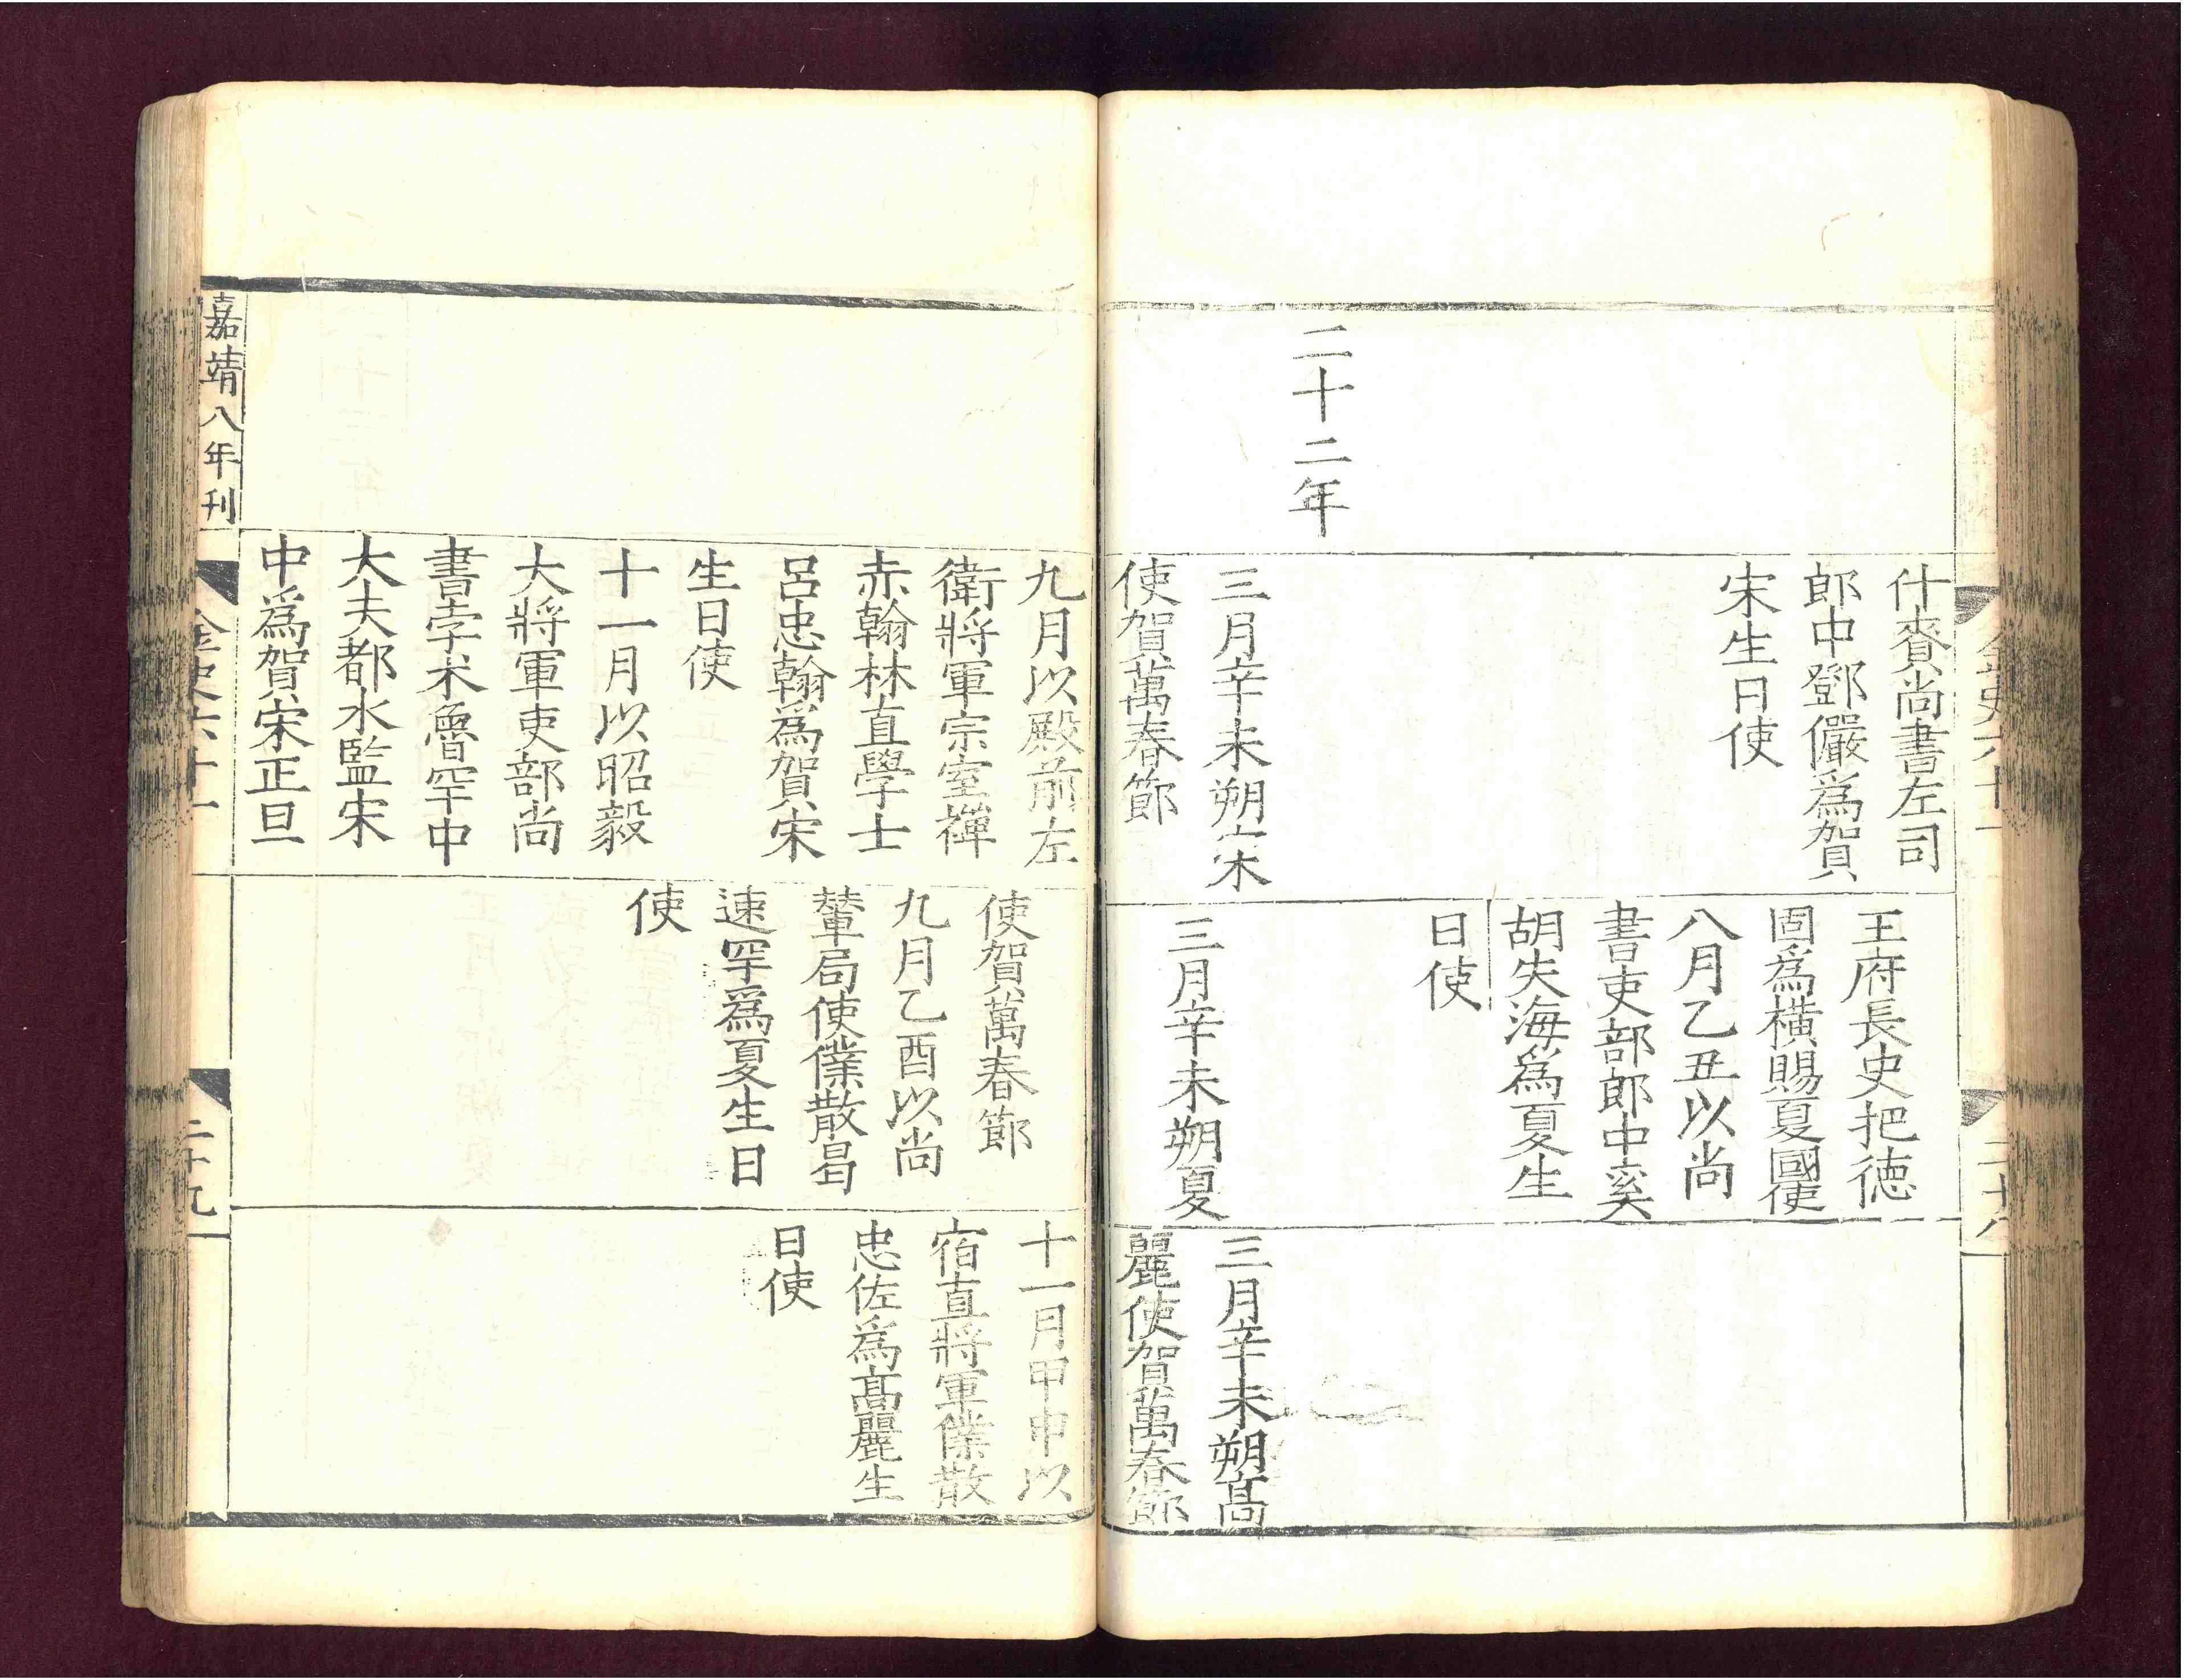 什賚尚書左司
郎中鄧儼爲賀
宋生日使
王府長史把德
固爲横賜夏國使
八月乙丑以尚
書吏部郎中奚
胡失海爲夏生
日使
二十二年
三月辛未朔宋
使賀萬春節
三月辛未朔夏
三月辛未朔髙
麗使賀萬春節
金史六十一
二十八
九月以殿前左
衛將軍宗室禪
赤翰林直學士
呂忠翰爲賀宋
生日使
十一月以昭毅
大將軍吏部尚
書孛术魯罕中
大夫都水監宋
中爲賀宋正旦
使賀萬春節
九月乙酉以尚
輦局使僕散曷
速罕爲夏生日
使
十一月甲申以
宿直將軍僕散
忠佐爲髙麗生
日使
嘉靖八年刊
金史六十一
二十九